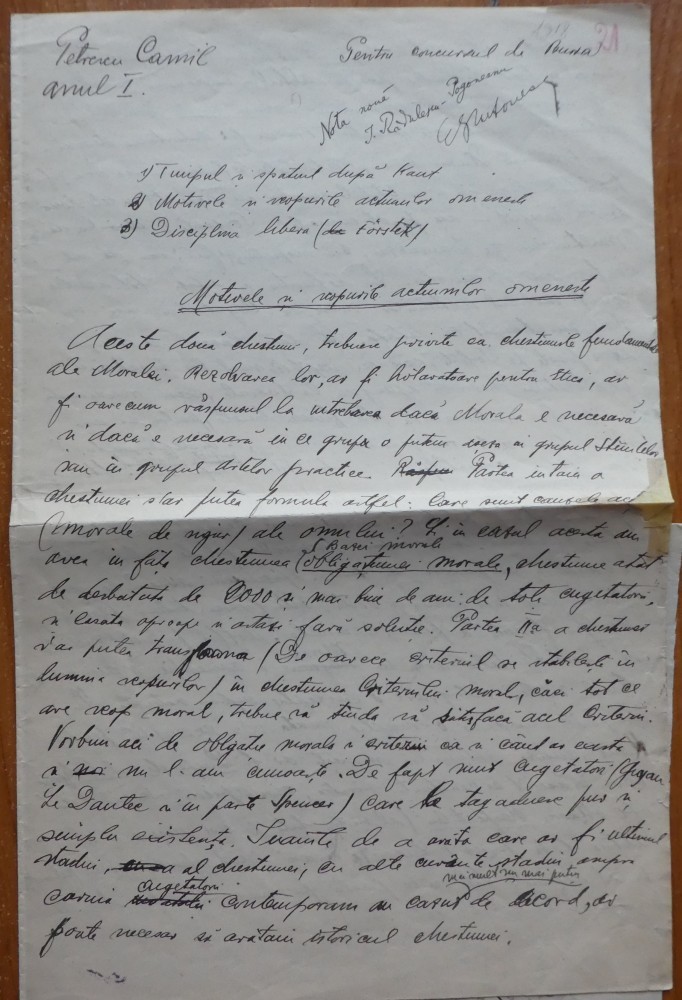 Petrescu Camil Pentru concursul de Bursa 21
anul I.
Nota nouă
I. Rădulescu-Pogoneanu
1) Timpul și spatiul după Kant
2) Motivele și scopurile actiunilor omenesti
3) Disciplina liberă (la Förster)
Motivele și scopurile actiunilor omenesti
Aceste două chestiuni, trebuesc privite ca chestiunile fundamentale
ale Moralei. Rezolvarea lor, ar fi hotaratoare pentru Etică, ar
fi oarecum răspunsul la intrebarea dacă Morala e necesară
si dacă e necesară in ce grupa o putem așeza in grupul Stiintelor
sau in grupul artelor practice. Partea intaia a
chestiunei s'ar putea formula astfel: Care sunt cauzele
(morale de sigur) ale omului? Si in cazul acesta am
avea in față chestiunea (Bazei morale) obligatiunei morale, chestiune atât
de desbatuta de 2000 și mai bine de ani de toti cugetatorii,
si lasata aproape si astazi fară solutie. Partea IIa a chestiunei
s'ar putea transforma (De oarece criteriul se stabileste in
lumina scopurilor) in chestiunea Criteriului moral, căci tot ce
are scop moral, trebue să tindă să satisfacă acel Criteriu.
Vorbim aci de obligatie morala si criteriu ca si când ar exista
si noi nu l-am cunoaște. De fapt sunt cugetatori (Guyau
Le Dantec si in parte Spencer) care le tagaduesc pur si
simplu existența. Inainte de a arata care ar fi ultimul
stadiu, al chestiunei, cu alte cuvinte stadiu asupra
mai mult sau mai putin
caruia cugetatorii contemporani au cazut de acord, ar
poate necesar să arătăm istoricul chestiunei.